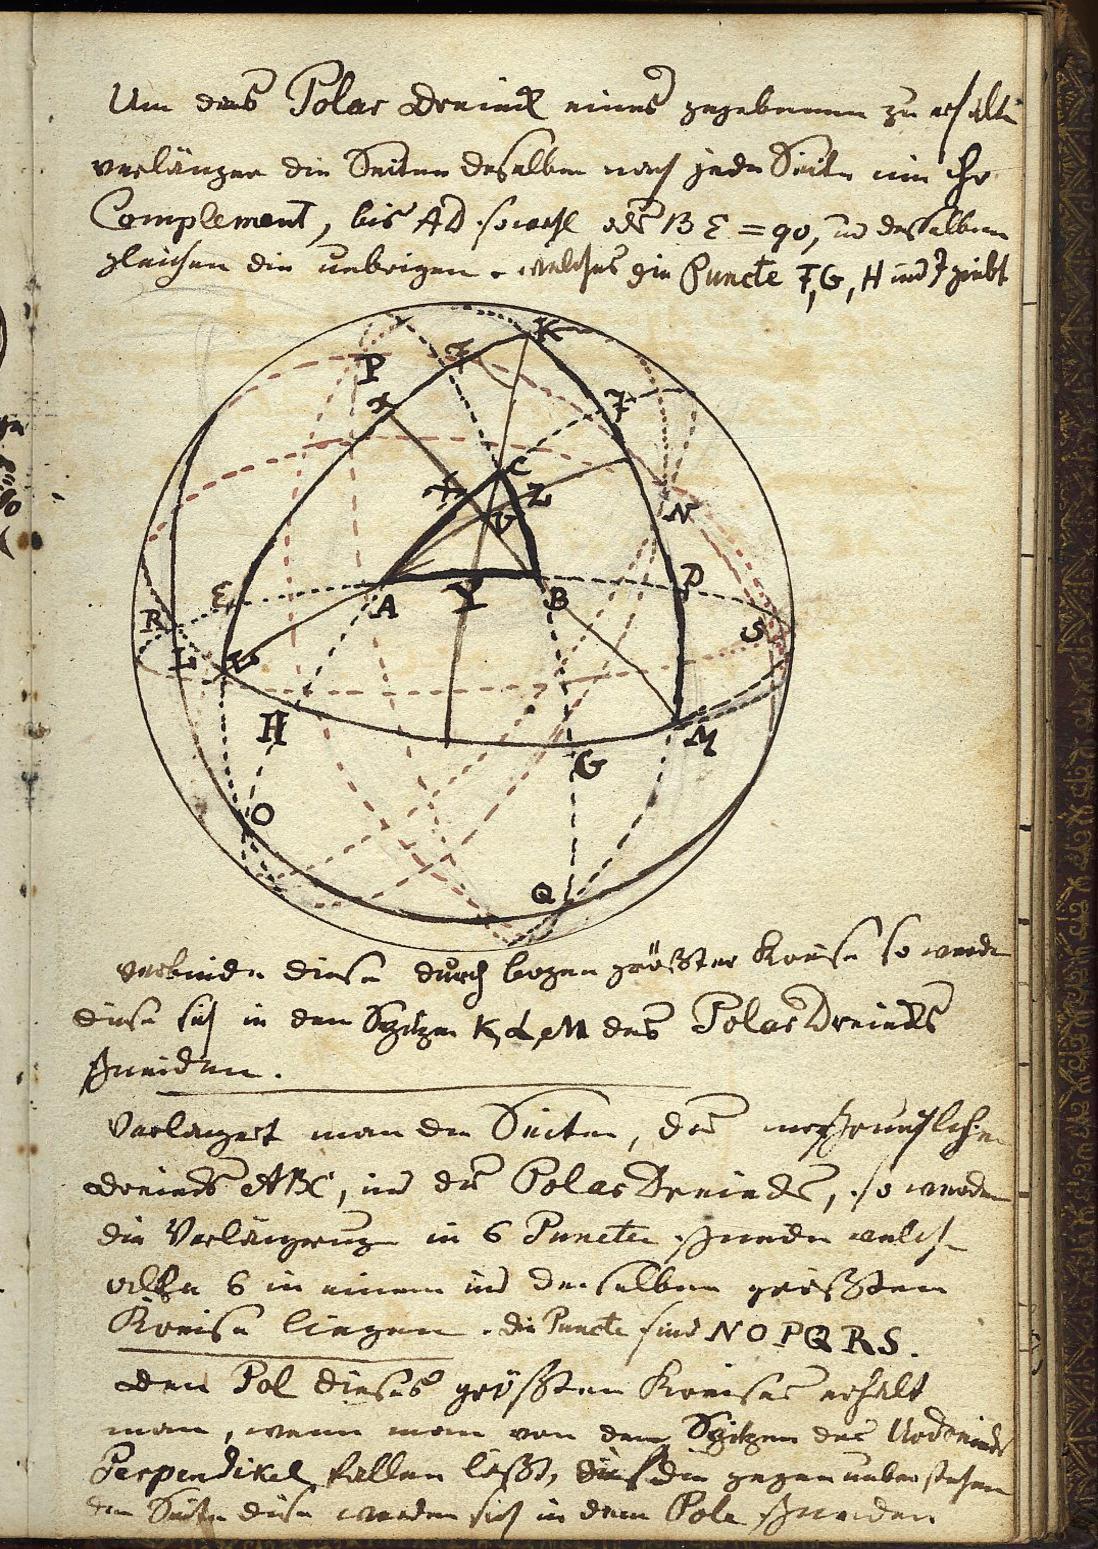 Um das Polar Dreieck eines gegebenen zu erhalte
verlänger die Seiten desselben nach jeder Seite um ihr
Complement, bis AD sowohl als BE = 90, und desselben
gleichen die uebrigen. welches die Puncte F, G, H und J giebt
K
P
F
X
J
C
X
Z
V
N
E
A
Y
B
D
R
S
L
H
M
G
O
Q
verbinde diese durch bogen größter Kreise so werde
diese sich in den Spitzen K, L, M des Polar Dreiecks
schneiden.
Verlangert man den Seiten, des ursprunglichen
dreiecks ABC, und des Polar Dreiecks, so werden
die Verlängrung in 6 Puncten schneiden welche
alle 6 in einem und demselben größten
Kreise liegen. die Puncte sind N O P Q R S.
den Pol dieses größten Kreises erhalt
man, wenn man von den Spitzen des
Perpendikel fallen läßt, auf den gegenueberstehen
den Seiten diese werden sich in dem Pole schneiden